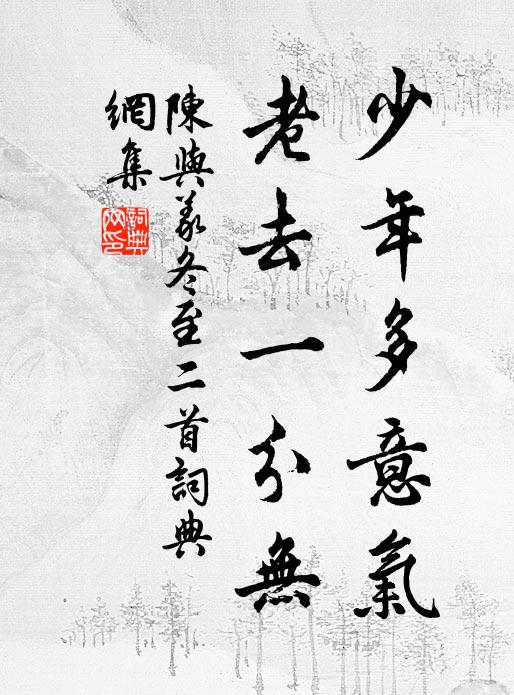 少年多意氣
老去一分無
陳與義冬至二首詞典
網集
詞典
网印